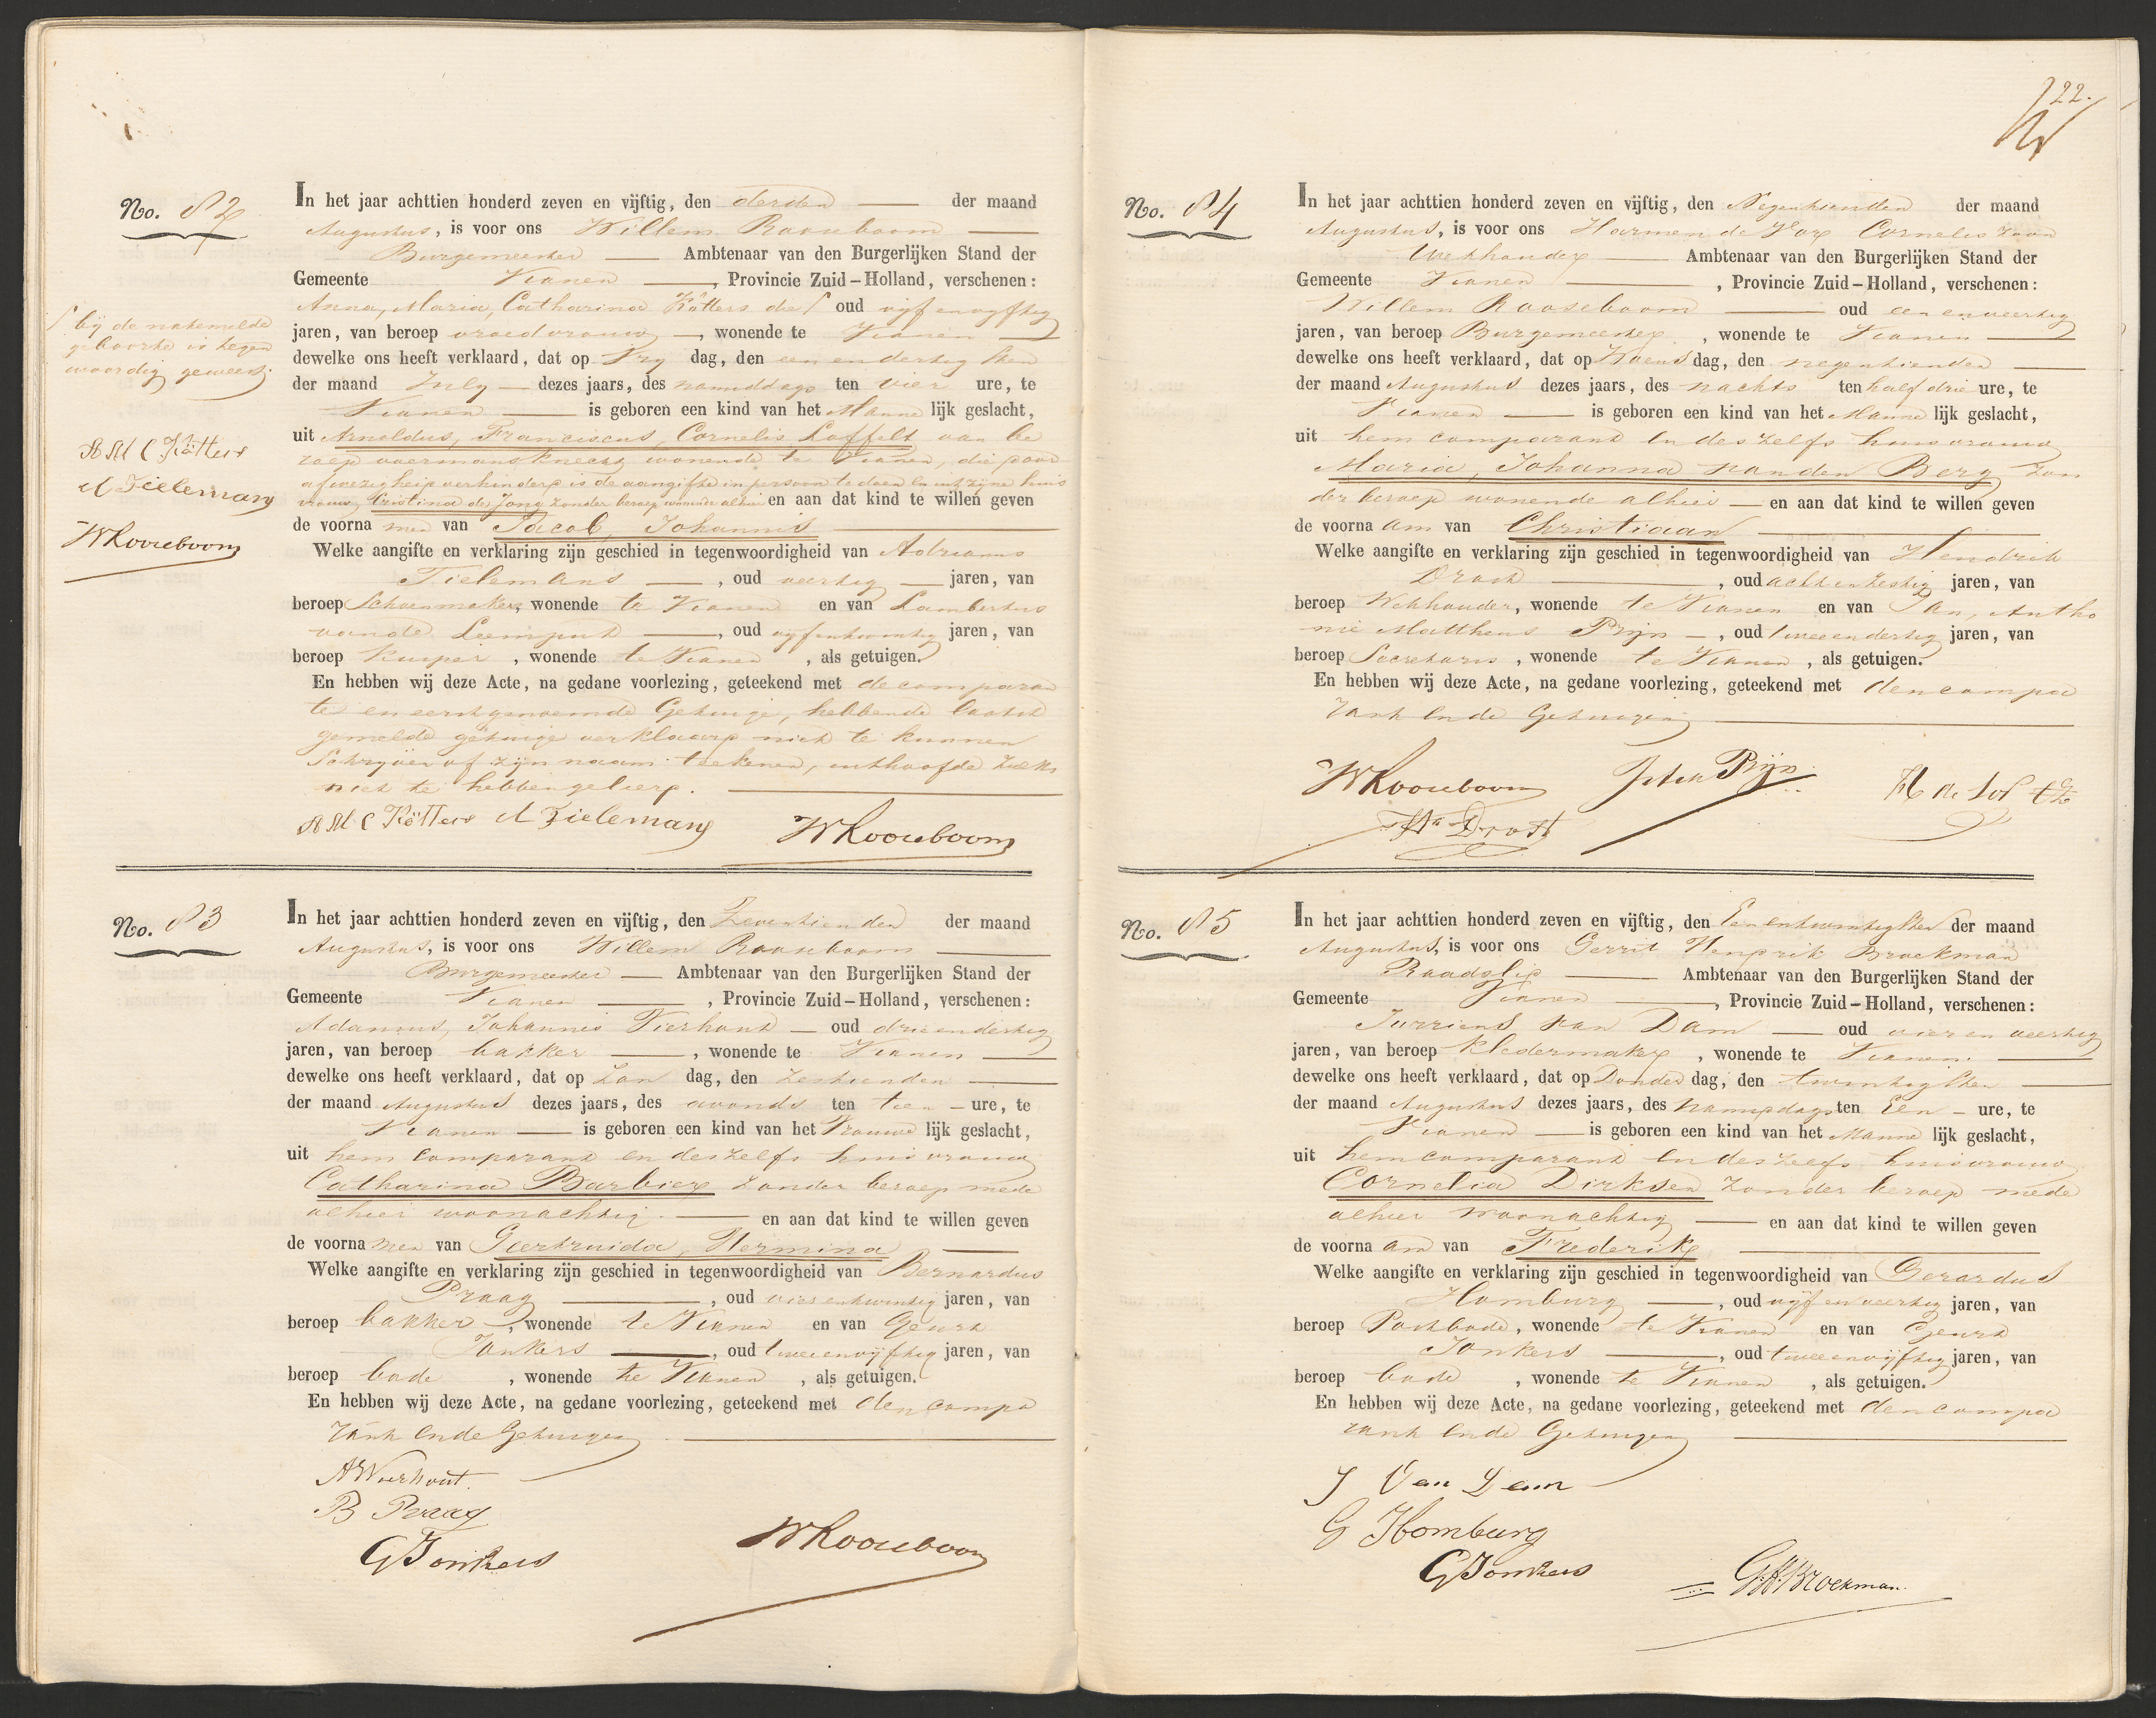 No. 82
In het jaar achttien honderd zeven en vijftig, den derden der maand
Augustus, is voor ons Willem Rooseboom
Burgemeester Ambtenaar van den Burgerlijken Stand der
Gemeente Vianen, Provincie Zuid-Holland, verschenen:
Anna, Maria, Catharina Kötters die ſ oud vijf envijftig
jaren, van beroep vroedvrouw, wonende te Vianen
dewelke ons heeft verklaard, dat op Vry dag, den een en dertigsten
der maand July dezes jaars, des namiddags ten vier ure, te
Vianen is geboren een kind van het Manne lijk geslacht,
uit Arnoldus, Franciscus, Cornelis Loffelt van be
roep voermansknecht wonende te Vianen, die door
afwezigheid verhinderd is de aangifte in persoon te doen en uit zijne huis
vrouw Cristina de Jong zonder beroep wonende alhier en aan dat kind te willen geven
de voorna men van Jacob, Johannis
Welke aangifte en verklaring zijn geschied in tegenwoordigheid van Adrianus
Tielemans, oud veertig jaren, van
beroep Schoenmaker, wonende te Vianen en van Lambertus
vande Leemput, oud vijfentwintig jaren, van
beroep kuiper, wonende te Vianen, als getuigen.
En hebben wij deze Acte, na gedane voorlezing, geteekend met de comparan
te en eerstgenoemde Getuige, hebbende laatst
gemelde getuige verklaard niet te kunnen
Schryven of zijn naam teekenen, uithoofde zulks
niet te hebben geleerd.
A M C Kötters A Tielemans WRooseboom
ſ bij de natemelde
geboorte is tegen
woordig geweest.
A M C Kötters
A Tielemans
WRooseboom
No. 83
In het jaar achttien honderd zeven en vijftig, den Zeventienden der maand
Augustus, is voor ons Willem Rooseboom
Burgemeester Ambtenaar van den Burgerlijken Stand der
Gemeente Vianen, Provincie Zuid-Holland, verschenen:
Adamus, Johannis Vierhout oud drieendertig
jaren, van beroep bakker, wonende te Vianen
dewelke ons heeft verklaard, dat op Zon dag, den zestienden
der maand Augustus dezes jaars, des avonds ten tien ure, te
Vianen is geboren een kind van het Vrouwe lijk geslacht,
uit hem Comparant en deszelfs huisvrouw
Catharina Barbier zonder beroep mede
alhier woonachtig. en aan dat kind te willen geven
de voorna men van Geertruida, Hermina
Welke aangifte en verklaring zijn geschied in tegenwoordigheid van Bernardus
Praag, oud vierentwintig jaren, van
beroep bakker, wonende te Vianen en van Geurt
Jonkers, oud tweeenvijftig jaren, van
beroep bode, wonende te Vianen, als getuigen.
En hebben wij deze Acte, na gedane voorlezing, geteekend met den compa
rant en de Getuigen
A Vierhout.
B Praag
GJonkers WRooseboom
22.
No. 84
In het jaar achttien honderd zeven en vijftig, den Negentienden der maand
Augustus, is voor ons Harmen de Cornelis zoon
Wethouder Ambtenaar van den Burgerlijken Stand der
Gemeente Vianen, Provincie Zuid-Holland, verschenen:
Willem Rooseboom oud een enveertig
jaren, van beroep Burgemeester, wonende te Vianen
dewelke ons heeft verklaard, dat op Woens dag, den negentienden
der maand Augustus dezes jaars, des nachts ten half drie ure, te
Vianen is geboren een kind van het Manne lijk geslacht,
uit hem comparant en deszelfs huisvrouw
Maria, Johanna van den Berg zon
der beroep wonende alhier en aan dat kind te willen geven
de voorna am van Christiaan
Welke aangifte en verklaring zijn geschied in tegenwoordigheid van Hendrik
Drost, oud acht en zestig jaren, van
beroep Wethouder, wonende te Vianen en van Jan, Antho
nie Mattheus Prijn, oud tweeendertig jaren, van
beroep Secretaris, wonende te Vianen, als getuigen.
En hebben wij deze Acte, na gedane voorlezing, geteekend met den compa
rant en de Getuigen
WRooseboom Prijn
Hk Drost
No. 85
In het jaar achttien honderd zeven en vijftig, den Eenentwintigsten der maand
Augustus, is voor ons Gerrit Hendrik Broekman
Raadslid Ambtenaar van den Burgerlijken Stand der
Gemeente Vianen, Provincie Zuid-Holland, verschenen:
Jurriens van Dam oud vier en veertig
jaren, van beroep kledermaker, wonende te Vianen.
dewelke ons heeft verklaard, dat op Donder dag, den twintigsten
der maand Augustus dezes jaars, des namiddags ten Een ure, te
Vianen is geboren een kind van het Manne lijk geslacht,
uit hem comparant en deszelfs huisvrouw
Cornelia Dirksen zonder beroep mede
alhier woonachtig en aan dat kind te willen geven
de voorna am van Frederik
Welke aangifte en verklaring zijn geschied in tegenwoordigheid van Gerardus
Homburg, oud vijf en veertig jaren, van
beroep Postbode, wonende te Vianen en van Geurt
Jonkers, oud tweeenvijftig jaren, van
beroep bode, wonende te Vianen, als getuigen.
En hebben wij deze Acte, na gedane voorlezing, geteekend met den compa
rant en de Getuigen
J Van Dam
G Homburg
GJonkers GHBroekman.